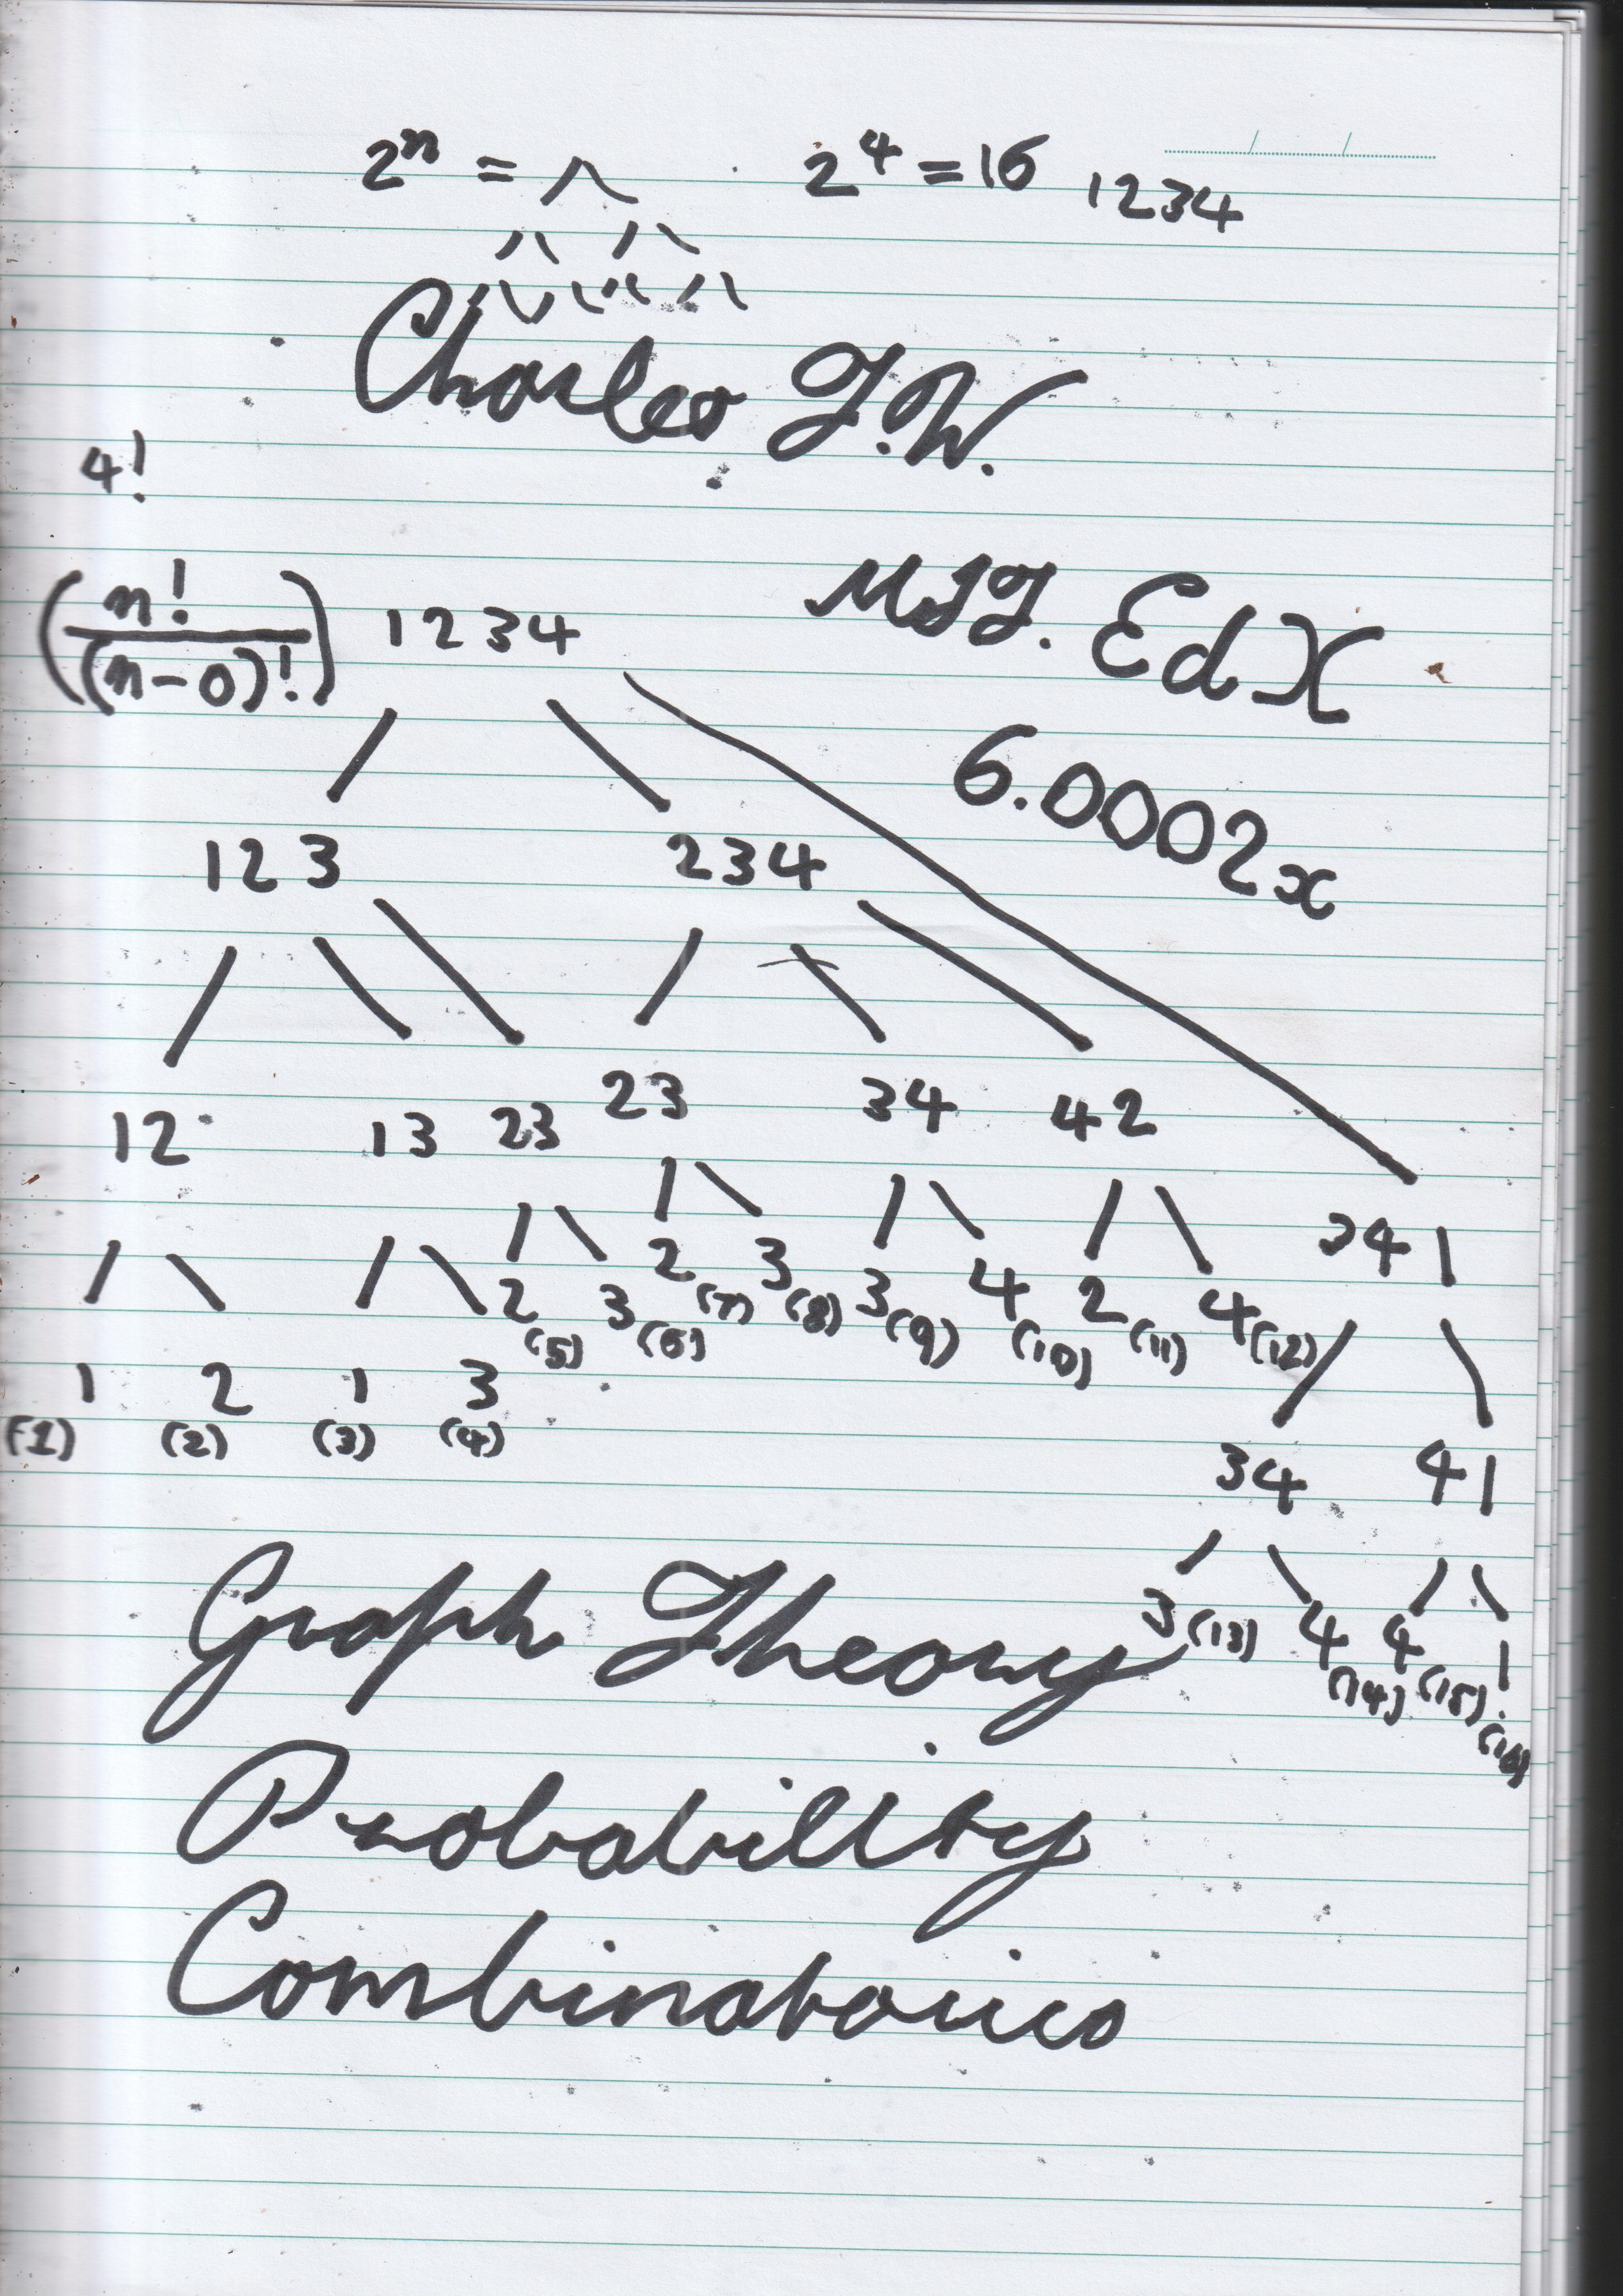 2ⁿ = 2⁴ = 16 1234
Charles J.W.
4!
(n!/(n-0)!) 1234
MIT. EdX
6.0002x
123 234
12 13 23 23 34 42
341
2 (5) 3 (6) 2 (7) 3 (8) 3 (9) 4 (10) 2 (11) 4 (12)
1 (1) 2 (2) 1 (3) 3 (4)
34 41
3 (13) 4 (14) 4 (15) 1 (16)
Graph Theory
Probability
Combinatorics